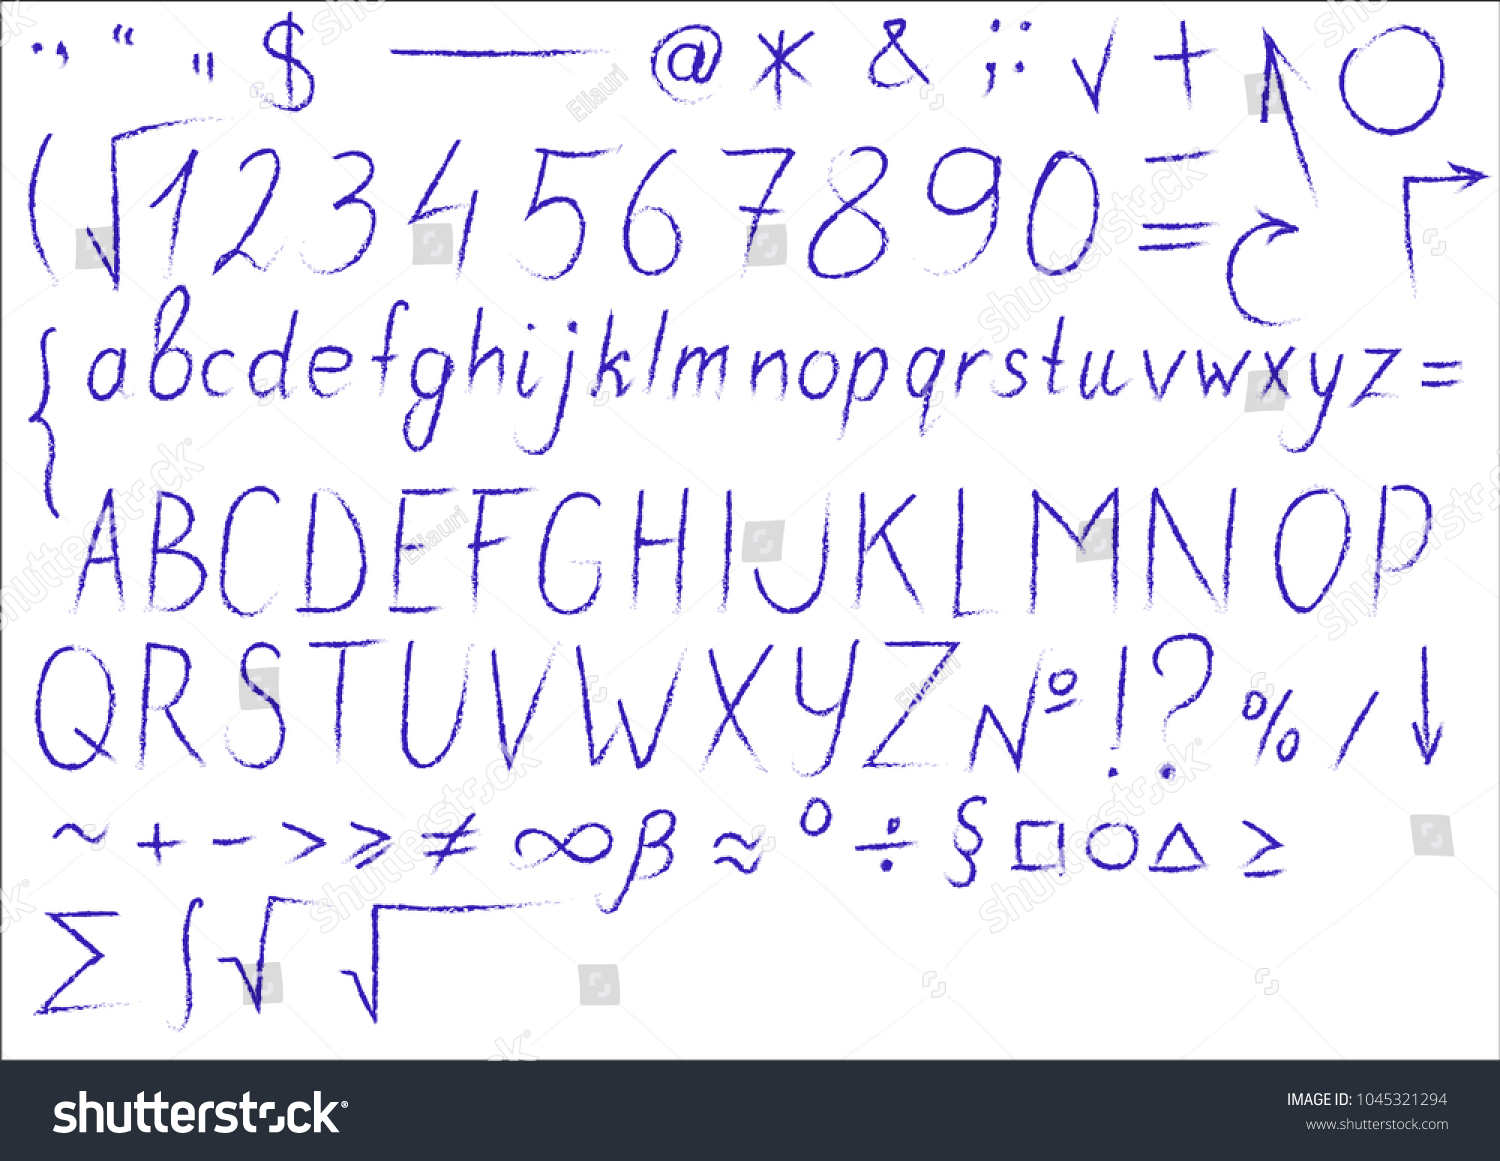 . , “ „ $ — @ * & ; : √ + ↑ ○
( √ 1 2 3 4 5 6 7 8 9 0 - = ↷ ↱
{ a b c d e f g h i j k l m n o p q r s t u v w x y z =
A B C D E F G H I J K L M N O P
Q R S T U V W X Y Z № ! ? % / ↓
~ + - > ⩾ ≠ ∞ β ≈ ° ÷ § □ ○ △ ≥
Σ ∫ √ √
shutterstock
Ellauri
IMAGE ID: 1045321294
www.shutterstock.com